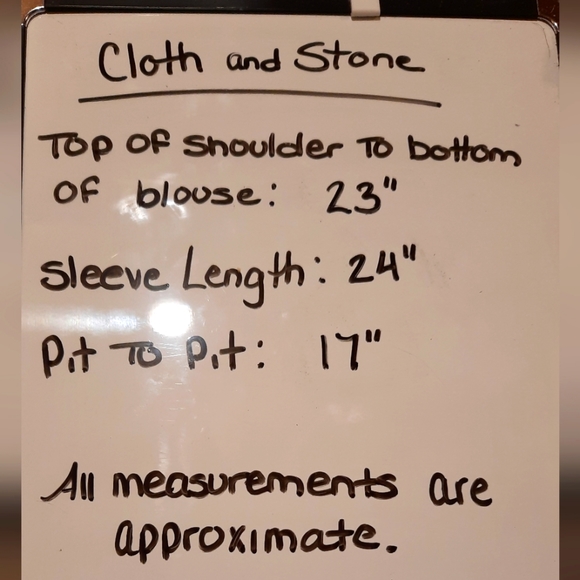 Cloth and Stone
Top of shoulder To bottom
of blouse: 23"
Sleeve Length: 24"
Pit To Pit: 17"
All measurements are
approximate.